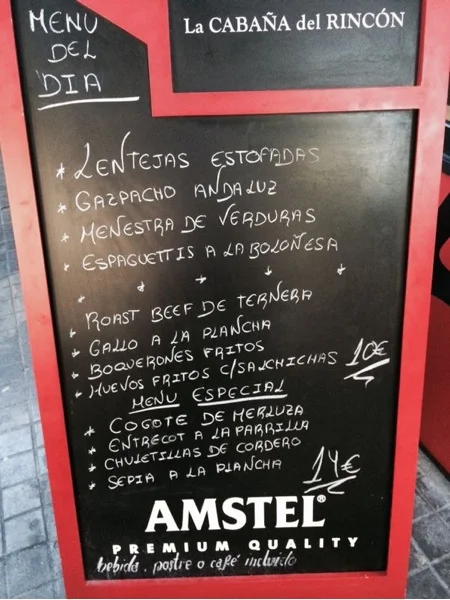 MENU
DEL
DIA
La CABAÑA del RINCÓN
* LENTEJAS ESTOFADAS
* GAZPACHO ANDALUZ
* MENESTRA DE VERDURAS
* ESPAGUETTIS A LA BOLOÑESA
* * * *
* ROAST BEEF DE TERNERA
* GALLO A LA PLANCHA
* BOQUERONES FRITOS
* HUEVOS FRITOS C/SALCHICHAS 10€
MENU ESPECIAL
* COGOTE DE MERLUZA
* ENTRECOT A LA PARRILLA
* CHULETILLAS DE CORDERO
* SEPIA A LA PLANCHA 14€
AMSTEL®
PREMIUM QUALITY
bebida, postre o café incluido